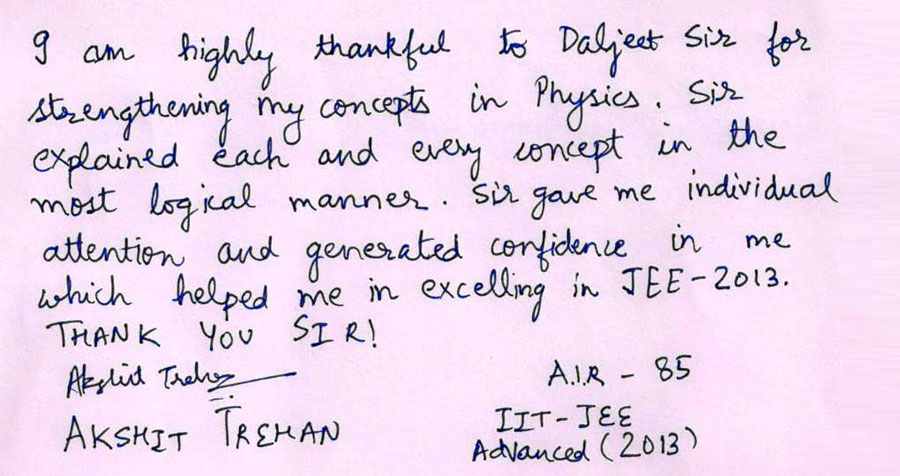 I am highly thankful to Daljeet Sir for
strengthening my concepts in Physics. Sir
explained each and every concept in the
most logical manner. Sir gave me individual
attention and generated confidence in me
which helped me in excelling in JEE-2013.
THANK YOU SIR!
Akshit Trehan
A.I.R - 85
AKSHIT TREHAN
IIT-JEE
Advanced (2013)